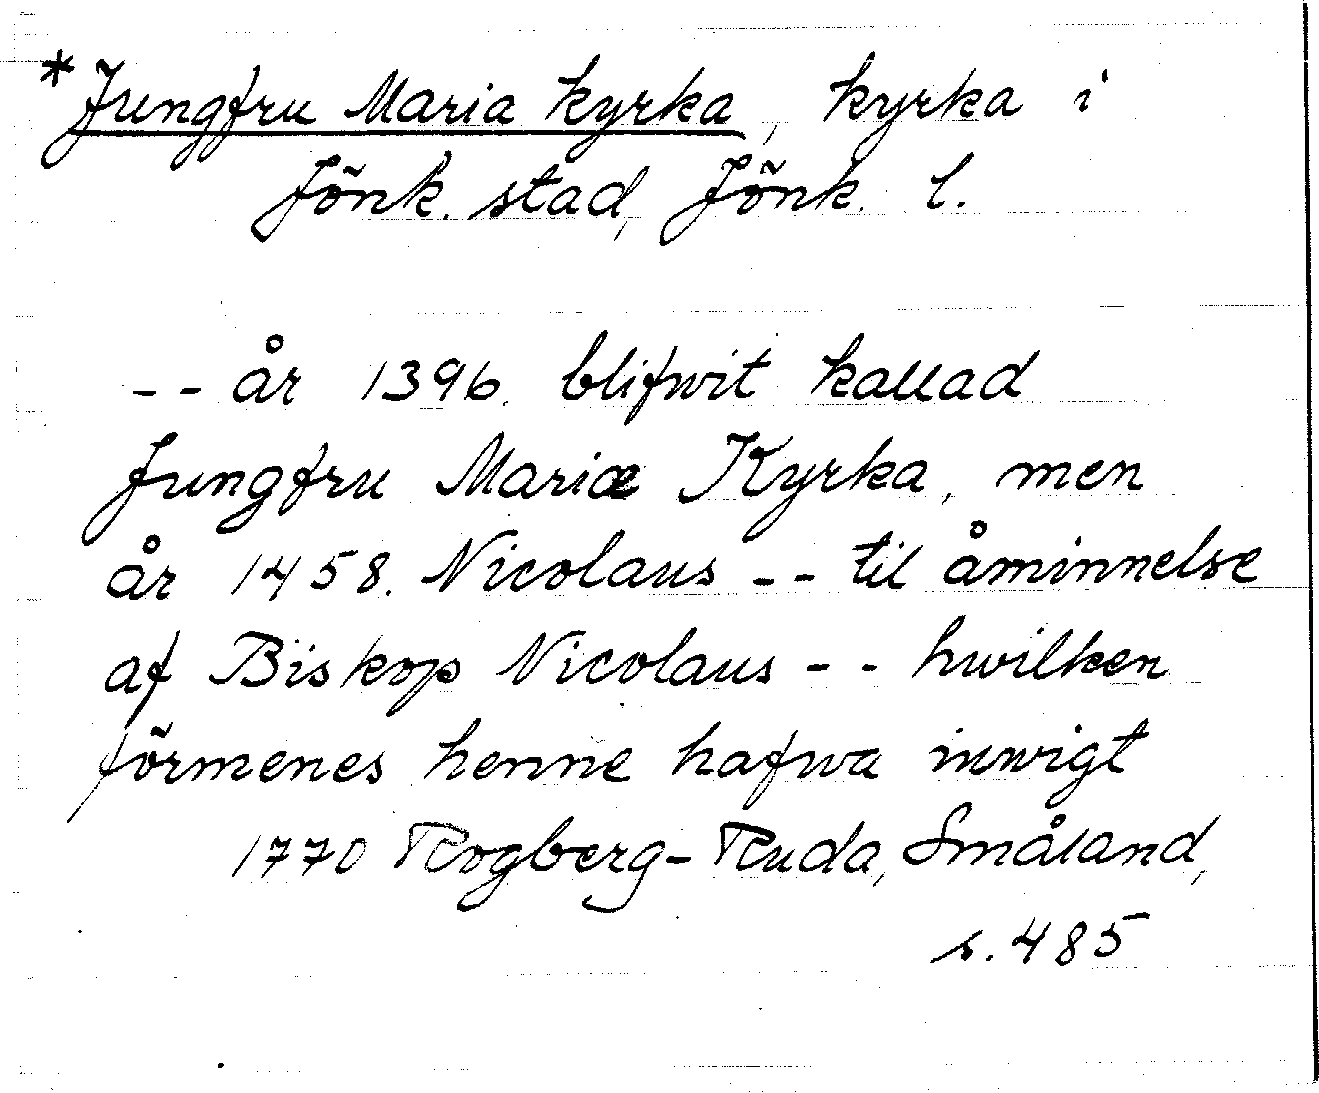 * Jungfru Maria kyrka, kyrka i
Jönk. stad, Jönk. l.
-- år 1396. blifwit kallad
Jungfru Mariæ Kyrka, men
år 1458. Nicolaus -- til åminnelse
af Biskop Nicolaus -- hwilken
förmenes henne hafwa inwigt
1770 Rogberg-Ruda, Småland,
s. 485